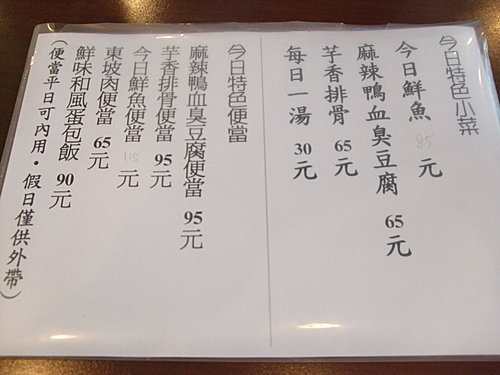 今日特色小菜
今日鮮魚 85 元
麻辣鴨血臭豆腐 65 元
芋香排骨 65 元
每日一湯 30 元
今日特色便當
麻辣鴨血臭豆腐便當 95 元
芋香排骨便當 95 元
今日鮮魚便當 115 元
東坡肉便當 65 元
鮮味和風蛋包飯 90 元
(便當平日可內用・假日僅供外帶)